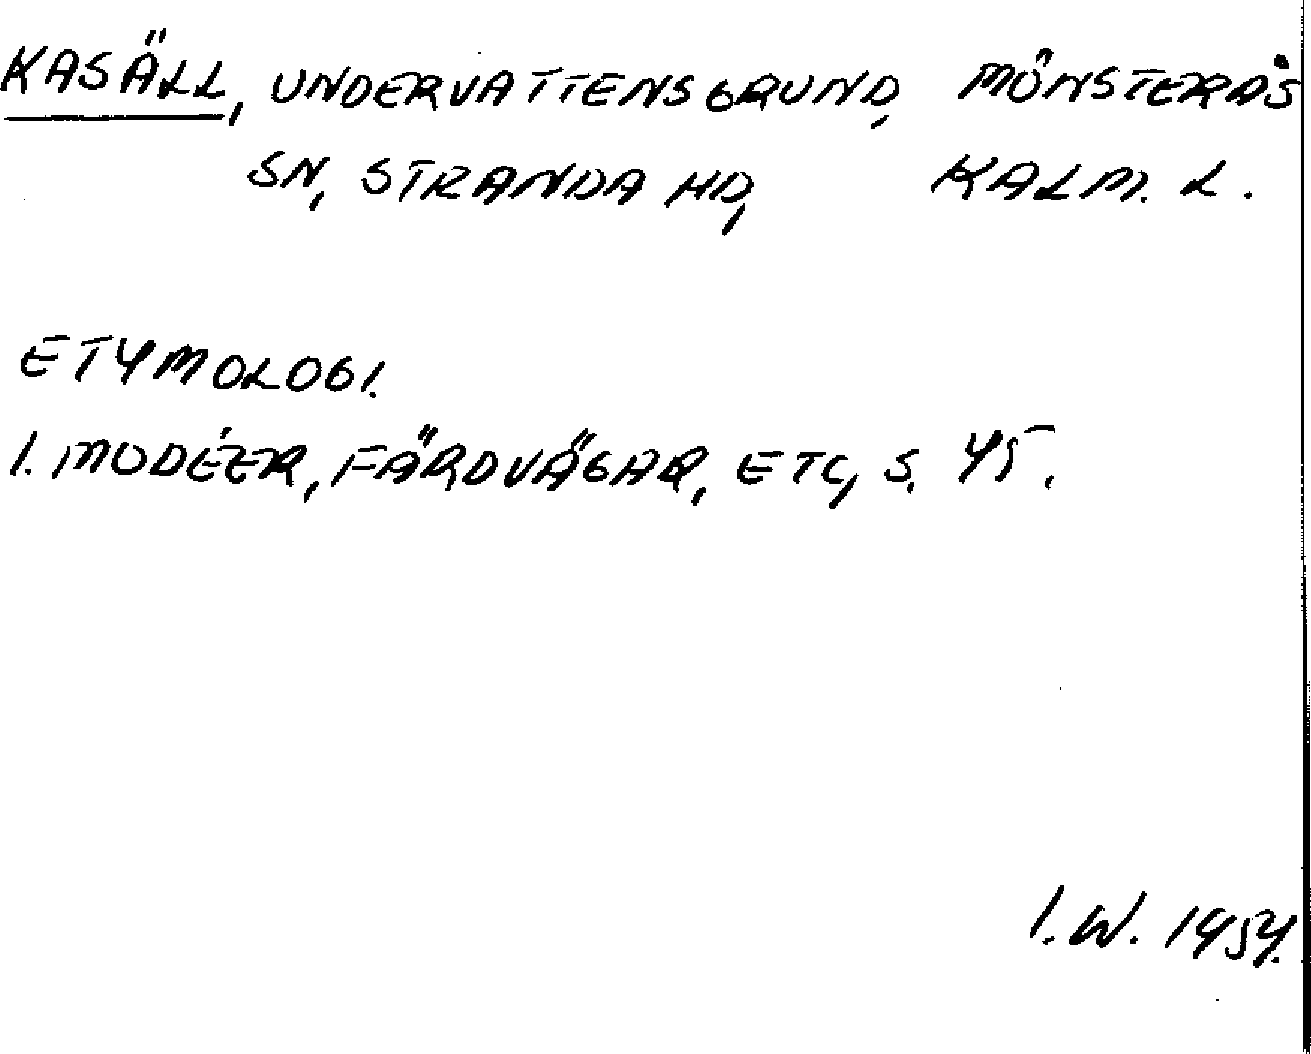 KASÄLL, UNDERVATTENSGRUND, MÖNSTERÅS
SN, STRANDA HD, KALM. L.
ETYMOLOGI.
I. MODÉER, FÄRDVÄGAR, ETC, S. 45.
I. W. 1954.